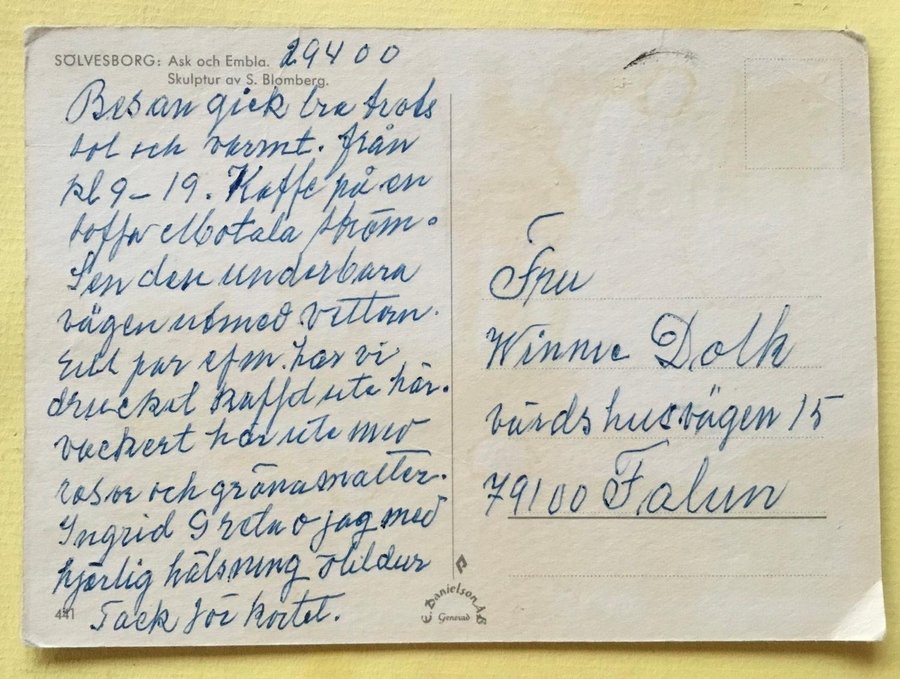 SÖLVESBORG: Ask och Embla. 29400
Skulptur av S. Blomberg.
Besan gick bra trots
sol och varmt. från
kl 9-19. Kaffe på en
soffa Motala ström.
Sen den underbara
vägen utmed vettern.
Ett par efm. har vi
druckit kaffe ute här.
vackert här ute med
rosor och gröna mattor.
Ingrid Greta o jag med
hjärlig hälsning Hildur
Tack för kortet.
441
C. Danielson A.B.
Generad
Fru
Winnie Dolk
värdshusvägen 15
79100 Falun